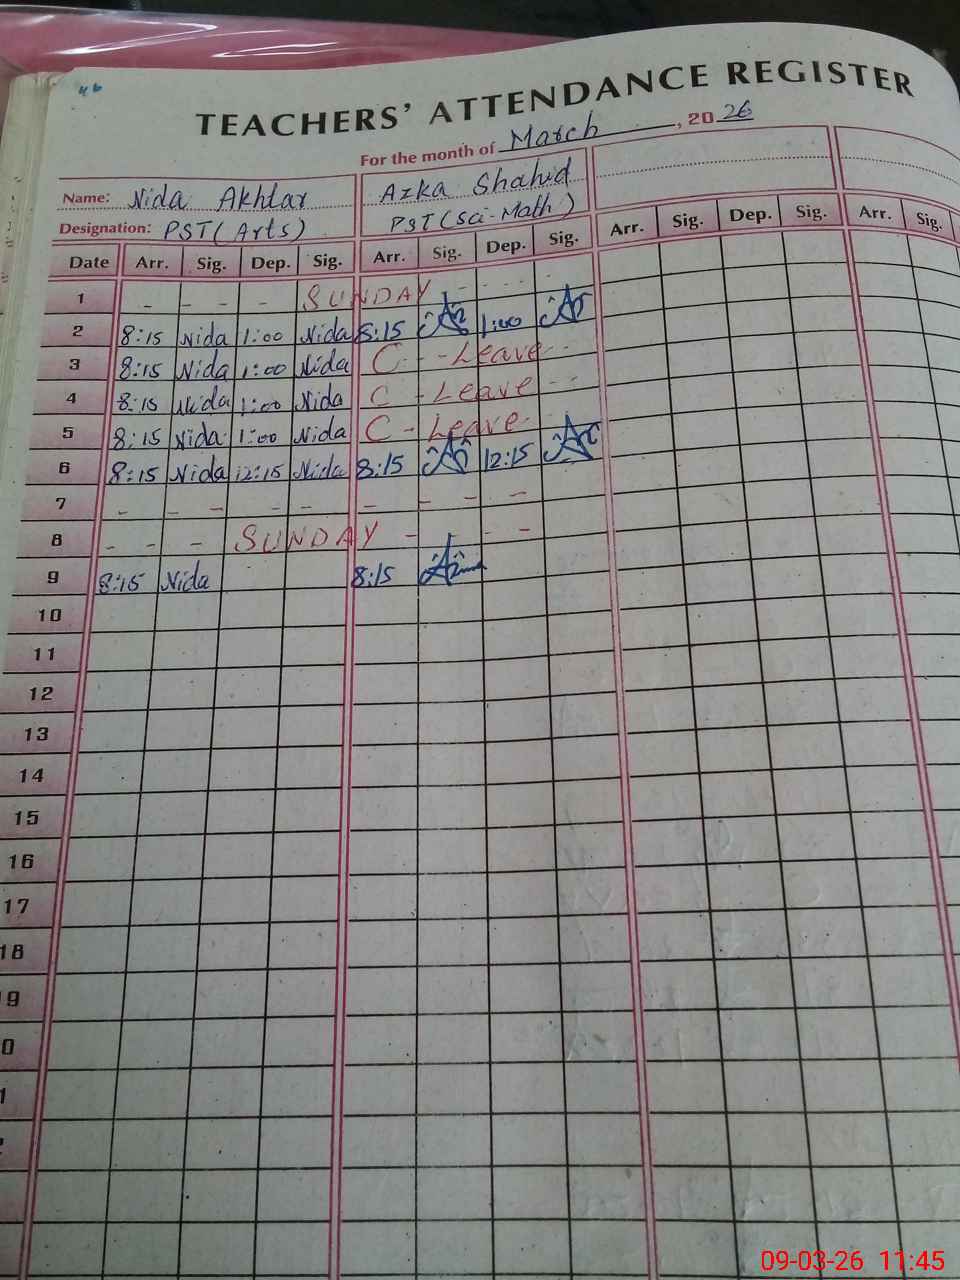 46
TEACHERS' ATTENDANCE REGISTER
For the month of March, 2026
Name: Nida Akhtar Azka Shahid
Designation: PST (Arts) PST (Sci-Math)
Date Arr. Sig. Dep. Sig. Arr. Sig. Dep. Sig. Arr. Sig. Dep. Sig. Arr. Sig.
1 - - - - SUNDAY - - - -
2 8:15 Nida 1:00 Nida 8:15 1:00
3 8:15 Nida 1:00 Nida C - - Leave - -
4 8:15 Nida 1:00 Nida C - Leave - -
5 8:15 Nida 1:00 Nida C - Leave - -
6 8:15 Nida 12:15 Nida 8:15 12:15
7 - - - - - - - - -
8 - - - SUNDAY - - -
9 8:15 Nida 8:15
10
11
12
13
14
15
16
17
18
9
0
1
09-03-26 11:45